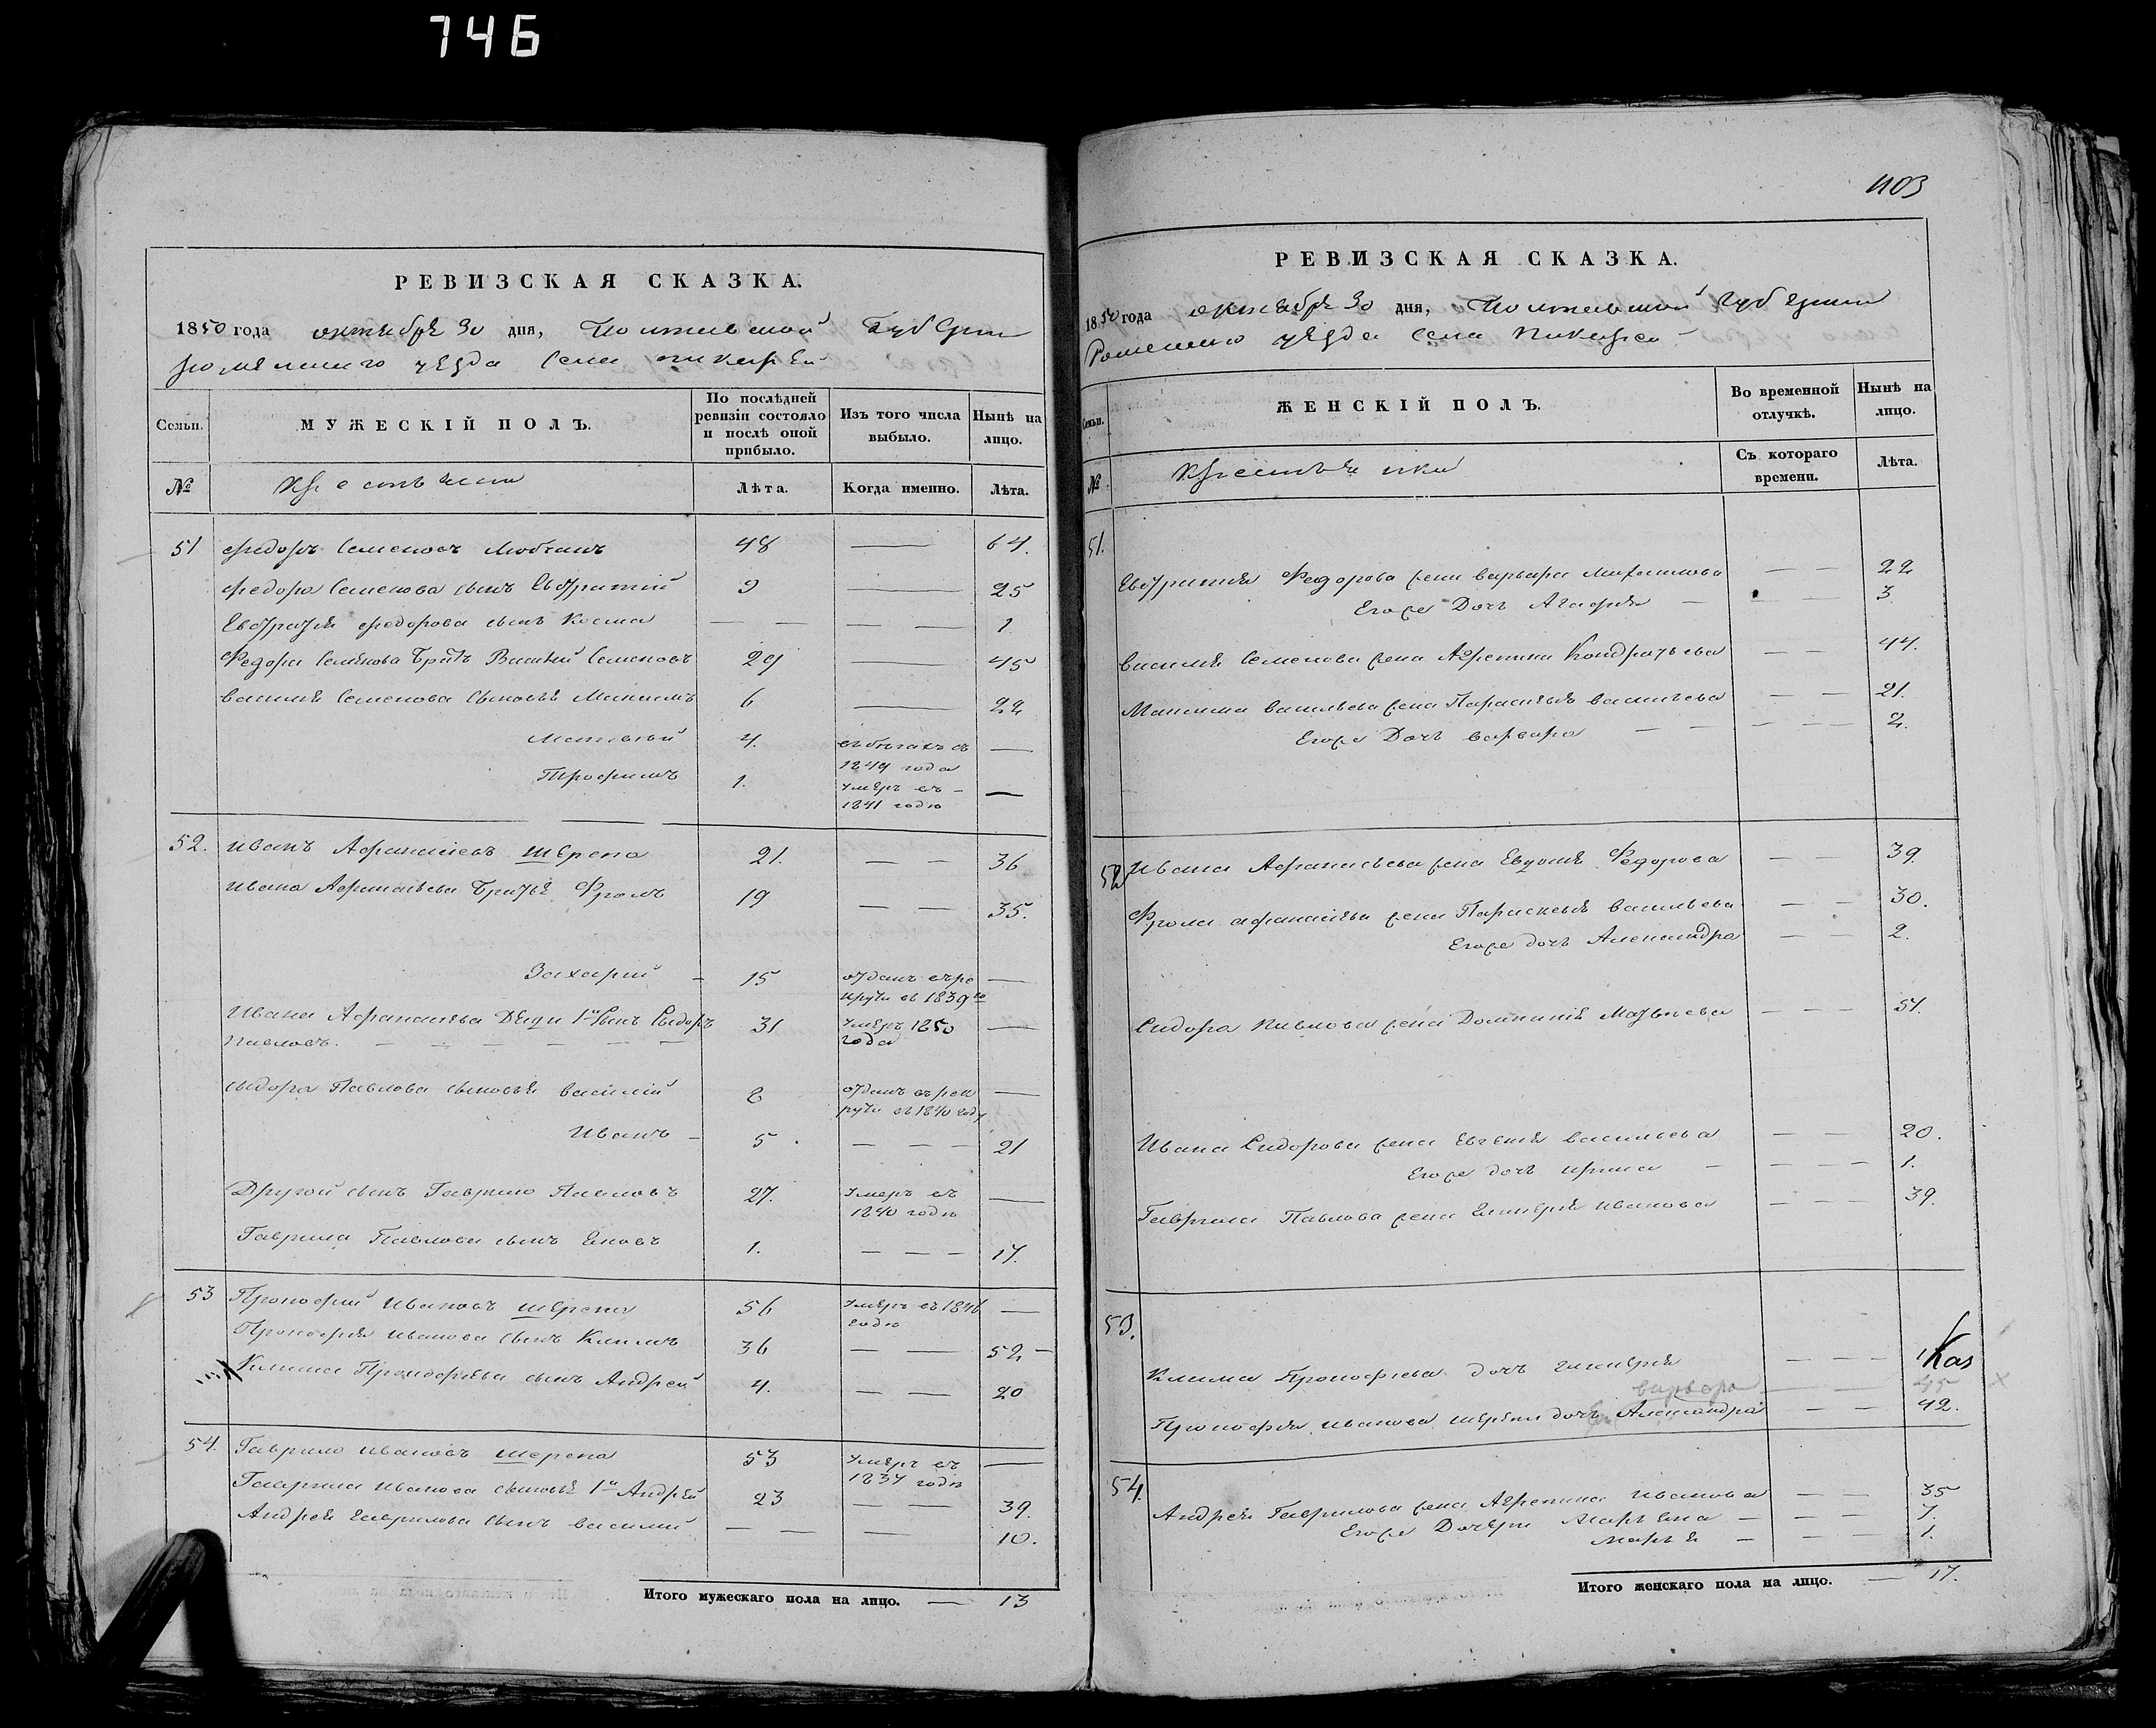 746
РЕВИЗСКАЯ СКАЗКА.
1850 года октября 30 дня, Полтавской Губернии
Роменского уезда села Пикарей
Семьи.
МУЖЕСКІЙ ПОЛЪ.
По послѣдней ревизіи состояло и послѣ оной прибыло.
Изъ того числа выбыло.
Нынѣ на лицо.
№
Крестьяне
Лѣта.
Когда именно.
Лѣта.
51 Федоръ Семеновъ 48 — 64.
Федора Семенова сынъ Евстратий 9 — 25
Евстратия Федорова сынъ Косма — — — — 1
Федора Семенова братъ Василий Семеновъ 29 — 45
Василия Семенова сыновья Максимъ 6 — 22
Матвей 4. въ бегахъ съ 1849 года —
Трофимъ 1. умеръ въ 1841 годо —
52. Иванъ Афанасиевъ Шерепа 21. — — 36
Ивана Афанасьева братья Фролъ 19 — — 35.
Захарий — 15 отданъ въ рекруты въ 1839 го —
Ивана Афанасиева Дяди 1й сынъ Сидоръ 31 умеръ 1850 года —
Павловъ. — — — — — —
Сидора Павлова сыновья Василий 8 отданъ въ рекруты въ 1840 году —
Иванъ — 5 — — — 21
Другой сынъ Гаврило Павловъ 27. умеръ въ 1840 годо —
Гаврила Павлова сынъ Яковъ 1. — — — 17.
53 Прокофий Ивановъ Шерепа 56 умеръ въ 1846 годо —
Прокофия Иванова сынъ Климъ 36 — — 52 —
Клима Прокофиева сынъ Андрей 4. — — 20
54. Гаврило Ивановъ Шерепа 53 умеръ въ 1837 годо —
Гаврила Иванова сыновья 1й Андрей 23 — — 39.
Андрея Гаврилова сынъ Василий — — — 10.
Итого мужескаго пола на лицо. — 13
1103
РЕВИЗСКАЯ СКАЗКА.
1850 года октября 30 дня, Полтавской Губернии
Роменского уезда села Пикарей
Семьи.
ЖЕНСКІЙ ПОЛЪ.
Во временной отлучкѣ.
Нынѣ на лицо.
№
Крестьянки
Съ котораго времени.
Лѣта.
51.
Евстратия Федорова жена Варвара Михайлова — — 22
Егоже Дочь Агафия — — — 3
Василия Семенова жена Агрепина Кондратьева — — 44.
Максима Васильева жена Парасковья Васильева — — 21.
Егоже Дочь Варвара — — — — 2.
52 Ивана Афанасьева жена Евдокия Федорова — — 39.
Фрола Афанасиева жена Параскевья Васильева — — 30.
Егоже дочь Александра — — 2.
Сидора Павлова жена Домникия Матвеева — — — 51.
Ивана Сидорова жена Евгения Васильева — — 20.
Егоже дочь Ирина — — — — 1.
Гаврила Павлова жена Гликерия Иванова — — — 39.
53.
Клима Прокофиева дочь Гликерия — — —
Варвара — — 45
Прокофия Иванова Шерепи дочь Александра — — 42.
54.
Андрея Гаврилова жена Агрепина Иванова — — 35
Егоже Дочери Марьяна — — — 7.
Марья — — — 1.
Итого женскаго пола на лицо. — 17.